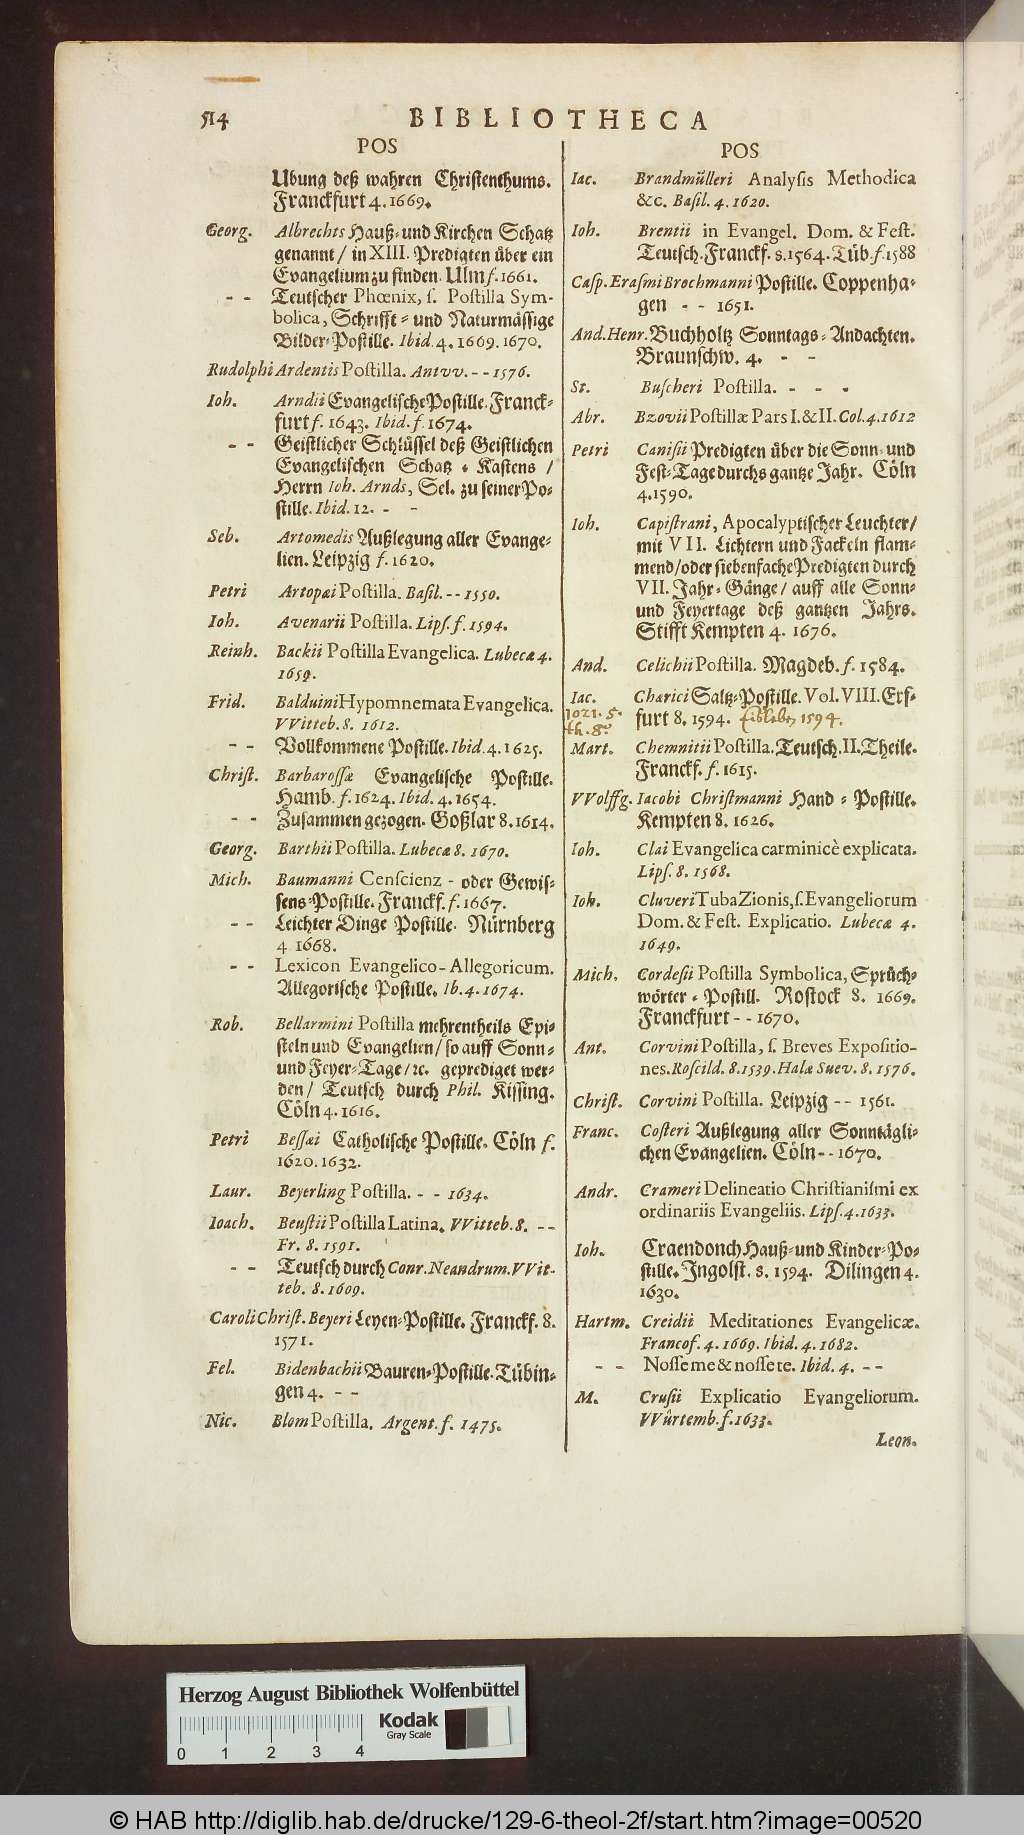 514
BIBLIOTHECA
POS
Ubung deß wahren Christenthums.
Franckfurt 4. 1669.
Georg. Albrechts Hauß- und Kirchen Schatz
genannt / in XIII. Predigten über ein
Evangelium zu finden. Ulm f. 1661.
- - Teutscher Phœnix, ſ. Poſtilla Sym-
bolica, Schrifft- und Naturmässige
Bilder-Postille. Ibid. 4. 1669. 1670.
Rudolphi Ardentis Poſtilla. Antvv. - - 1576.
Ioh. Arndii Evangelische Postille. Franck-
furt f. 1643. Ibid. f. 1674.
- - Geistlicher Schlüssel deß Geistlichen
Evangelischen Schatz-Kastens /
Herrn Ioh. Arnds, Sel. zu seiner Po-
stille. Ibid. 12. - -
Seb. Artomedis Außlegung aller Evange-
lien. Leipzig f. 1620.
Petri Artopæi Poſtilla. Baſil. - - 1550.
Ioh. Avenarii Poſtilla. Lipſ. f. 1594.
Reinh. Backii Poſtilla Evangelica. Lubecæ 4.
1659.
Frid. Balduini Hypomnemata Evangelica.
VVitteb. 8. 1612.
- - Vollkommene Postille. Ibid. 4. 1625.
Chriſt. Barbaroſſæ Evangelische Postille.
Hamb. f. 1624. Ibid. 4. 1654.
- - Zusammen gezogen. Goßlar 8. 1614.
Georg. Barthii Poſtilla. Lubecæ 8. 1670.
Mich. Baumanni Cenſcienz- oder Gewis-
sens-Postille. Franckf. f. 1667.
- - Leichter Dinge Postille. Nürnberg
4 1668.
- - Lexicon Evangelico-Allegoricum.
Allegorische Postille. Ib. 4. 1674.
Rob. Bellarmini Poſtilla mehrentheils Epi-
steln und Evangelien / so auff Sonn-
und Feyer-Tage / ꝛc. geprediget wer-
den / Teutsch durch Phil. Kissing.
Cöln 4. 1616.
Petri Beſſæi Catholische Postille. Cöln f.
1620. 1632.
Laur. Beyerling Poſtilla. - - 1634.
Ioach. Beuſtii Poſtilla Latina. VVitteb. 8. - -
Fr. 8. 1591.
- - Teutsch durch Conr. Neandrum. VVit-
teb. 8. 1609.
Caroli Chriſt. Beyeri Leyen-Postille. Franckf. 8.
1571.
Fel. Bidenbachii Bauren-Postille. Tübin-
gen 4. - -
Nic. Blom Poſtilla. Argent. f. 1475.
POS
Iac. Brandmülleri Analyſis Methodica
&c. Baſil. 4. 1620.
Ioh. Brentii in Evangel. Dom. & Feſt.
Teutsch. Franckf. 8. 1564. Tüb. f. 1588
Caſp. Eraſmi Brochmanni Postille. Coppenha-
gen - - 1651.
And. Henr. Buchholtz Sonntags-Andachten.
Braunschw. 4. - -
St. Buſcheri Poſtilla. - - -
Abr. Bzovii Poſtillæ Pars I. & II. Col. 4. 1612
Petri Caniſii Predigten über die Sonn- und
Fest-Tage durchs gantze Jahr. Cöln
4. 1590.
Ioh. Capiſtrani, Apocalyptischer Leuchter /
mit VII. Lichtern und Fackeln flam-
mend / oder siebenfache Predigten durch
VII. Jahr-Gänge / auff alle Sonn-
und Feyertage deß gantzen Jahrs.
Stifft Kempten 4. 1676.
And. Celichii Poſtilla. Magdeb. f. 1584.
Iac. Charici Saltz-Postille. Vol. VIII. Erf-
1021. 5. furt 8. 1594. Eisleben 1594.
th. 8°
Mart. Chemnitii Poſtilla. Teutsch. II. Theile.
Franckf. f. 1615.
VVolffg. Iacobi Chriſtmanni Hand-Postille.
Kempten 8. 1626.
Ioh. Clai Evangelica carminicè explicata.
Lipſ. 8. 1568.
Ioh. Cluveri Tuba Zionis, ſ. Evangeliorum
Dom. & Feſt. Explicatio. Lubecæ 4.
1649.
Mich. Cordeſii Poſtilla Symbolica, Sprüch-
wörter-Postill. Rostock 8. 1669.
Franckfurt - - 1670.
Ant. Corvini Poſtilla, ſ. Breves Expoſitio-
nes. Roſcild. 8. 1539. Halæ Suev. 8. 1576.
Chriſt. Corvini Poſtilla. Leipzig - - 1561.
Franc. Coſteri Außlegung aller Sonntägli-
chen Evangelien. Cöln - - 1670.
Andr. Crameri Delineatio Chriſtianiſmi ex
ordinariis Evangeliis. Lipſ. 4. 1633.
Ioh. Craendonch Hauß- und Kinder-Po-
stille. Ingolst. 8. 1594. Dilingen 4.
1630.
Hartm. Creidii Meditationes Evangelicæ.
Francof. 4. 1669. Ibid. 4. 1682.
- - Noſſe me & noſſe te. Ibid. 4. - -
M. Cruſii Explicatio Evangeliorum.
VVürtemb. f. 1633.
Leon.
Herzog August Bibliothek Wolfenbüttel
Kodak
Gray Scale
0 1 2 3 4
© HAB http://diglib.hab.de/drucke/129-6-theol-2f/start.htm?image=00520